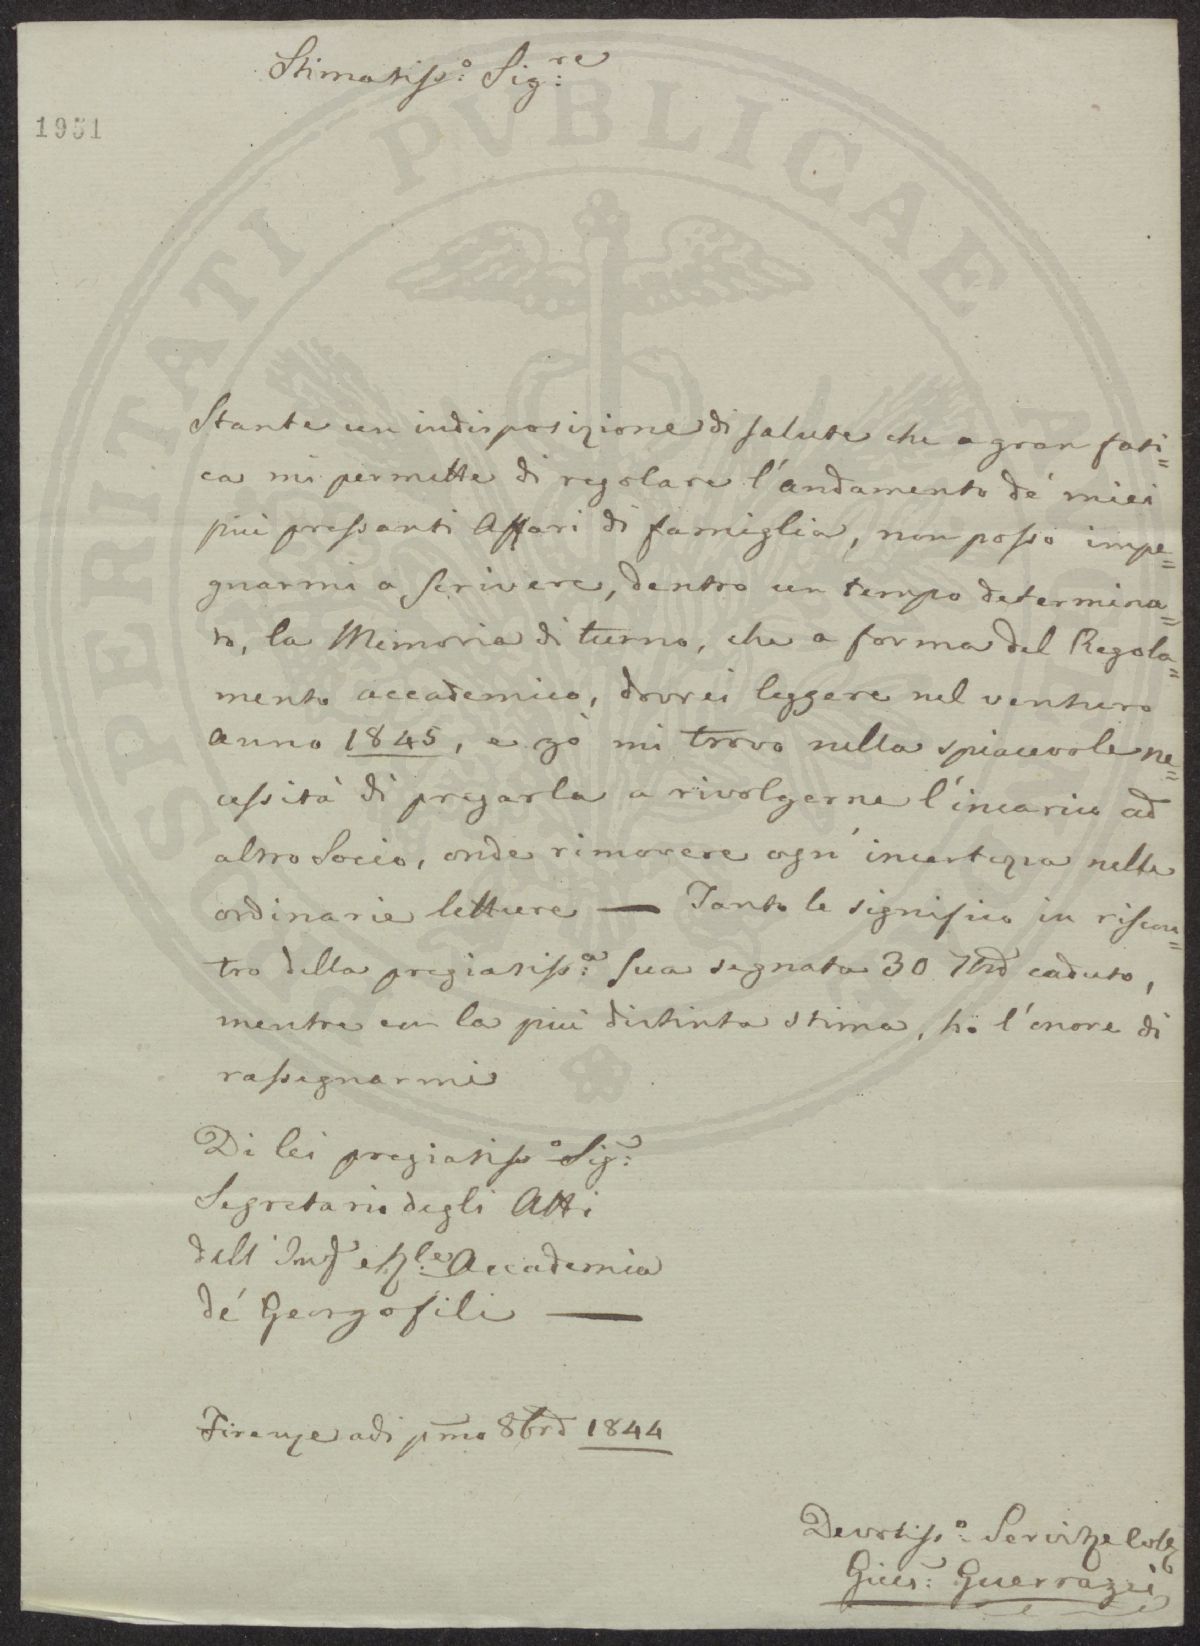 Stimatiss:º Sig:re
1951
Stante un indisposizione di salute che a gran fati=
ca mi permette di regolare l'andamento de' miei
più pressanti Affari di famiglia, non posso impe=
gnarmi a scrivere, dentro un tempo determina=
to, la Memoria di turno, che a forma del Regola=
mento accademico, dovrei leggere nel venturo
anno 1845, e ciò mi trovo nella spiacevole ne=
cessità di pregarla a rivolgerne l'incarico ad
altro Socio, onde rimovere ogni incertezza nelle
ordinarie letture — Tanto le significo in riscon=
tro della pregiatiss:a Sua segnata 30 7bre caduto,
mentre con la più distinta stima, ho l'onore di
rassegnarmi
Di lei pregiatiss:º Sig:
Segretario degli Atti
dell' e Accademia
de' Georgofili —
Firenze adi pmo 8bre 1844
Devotiss:º
Gius: Guerrazzi
PROSPERITATI PVBLICAE